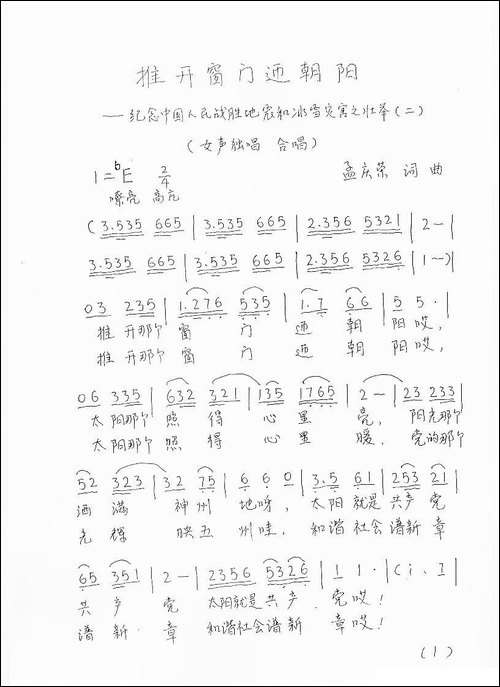 推开窗门迊朝阳
——纪念中国人民战胜地震和冰雪灾害之壮举(二)
(女声独唱 合唱)
1=bE 2/4 孟庆荣 词 曲
嘹亮 高亢
(3.535 665 | 3.535 665 | 2.356 5321 | 2 - |
3.535 665 | 3.535 665 | 2.356 5326 | 1 -) |
03 235 | 1.276 535 | 1.7 66 | 5 5· |
推 开那个 窗 门 迊 朝 阳 哎,
推 开那个 窗 门 迊 朝 阳 哎,
06 335 | 632 321 | 135 1765 | 2 - | 23 233 |
太 阳那个 照 得 心 里 亮, 阳光那个
太 阳那个 照 得 心 里 暖, 党的那个
52 323 | 32 75 | 6 6 0 | 3.5 61 | 253 21 |
洒 满 神 州 地呀, 太 阳 就是 共产 党
光 辉 映 五 州 哇, 和谐 社会 谱新 章
65 351 | 2 - | 2356 5326 | 1 1· | (i. I |
共 产 党 太阳就是 共产 党哎!
谱 新 章 和谐社会 谱新 章哎!
(1)